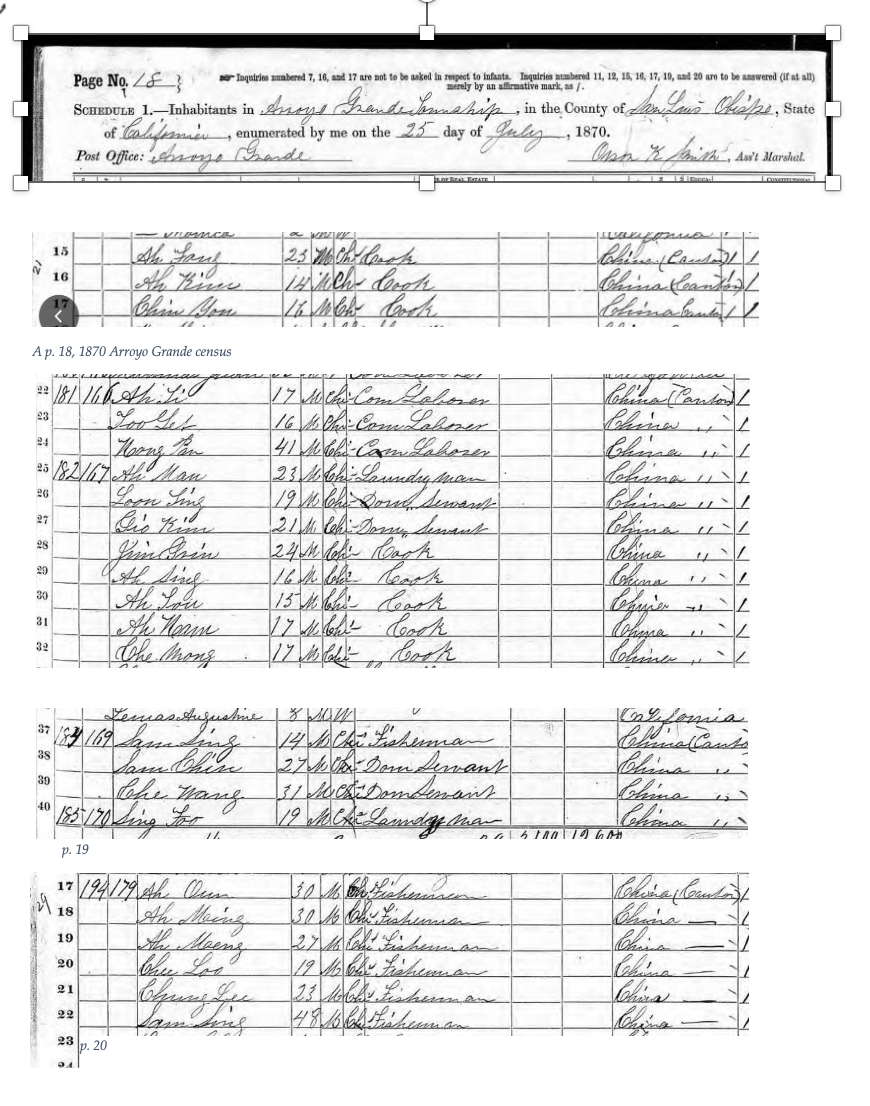 Page No. 18 } ☞ Inquiries numbered 7, 16, and 17 are not to be asked in respect to infants. Inquiries numbered 11, 12, 15, 16, 17, 19, and 20 are to be answered (if at all)
merely by an affirmative mark, as /.
SCHEDULE 1.—Inhabitants in Arroyo Grande Township, in the County of San Luis Obispo, State
of California, enumerated by me on the 25 day of July, 1870.
Post Office: Arroyo Grande Orson K Smith, Ass't Marshal.
OF REAL ESTATE
California
15 Ah Fong 23 M Chi Cook China (Canton) 1 1
16 Ah Kim 14 M Ch Cook China (Canton) 1 1
17 Chin You 16 M Ch Cook China Canton 1 1
A p. 18, 1870 Arroyo Grande census
22 181 166 Ah Li 17 M Chi Com Laborer China (Canton) 1
23 Foo Get 16 M Chi Com Laborer China " 1
24 41 M Chi Com Laborer China " 1
25 182 167 Ah Man 23 M Chi Laundry man China " 1
26 Loon Sing 19 M Chi Dom Servant China " 1
27 Gio Kim 21 M Chi Dom Servant China " 1
28 Jim 24 M Chi Cook China " 1
29 Ah Sing 16 M Chi Cook China " 1
30 Ah 15 M Chi Cook China " 1
31 Ah Nam 17 M Chi Cook China " 1
32 Che Mong 17 M Chi Cook China " 1
Lemas Augustine 8 M W California
37 184 169 Sam Sing 14 M Chi Fisherman China (Canto
38 Sam Chin 27 M Chi Dom Servant China "
39 Che Wang 31 M Chi Dom Servant China "
40 185 170 Sing Foo 19 M Chi Laundry man China "
p. 19
17 194 179 Ah 30 M Chi Fisherman China (Canton) 1
18 Ah Ming 30 M Chi Fisherman China —
19 Ah Moeng 27 M Chi Fisherman China —
20 Chee Loo 19 M Chi Fisherman China —
21 Chung Lee 23 M Chi Fisherman China —
22 Sam Sing 48 M Chi Fisherman China —
23
p. 20
24